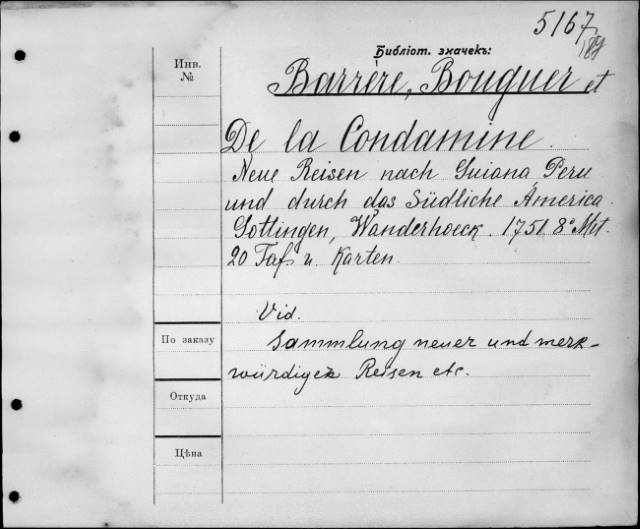 5167
Библіот. значекъ:
189
Инв.
№
Barrère, Bouguer et
De la Condamine.
Neue Reisen nach Guiana Peru
und durch das Südliche America.
Gottingen, Wanderhoeck. 1751. 8° Mit
20 Taf. u. Karten.
Vid.
Sammlung neuer und merk-
würdigen Reisen etc.
По заказу
Откуда
Цѣна